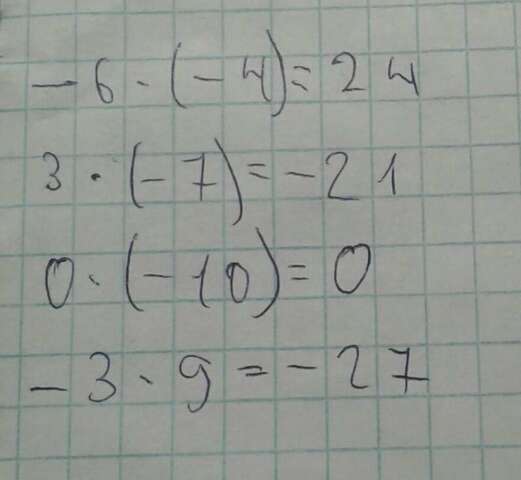 -6·(-4)=24
3·(-7)=-21
0·(-10)=0
-3·9=-27